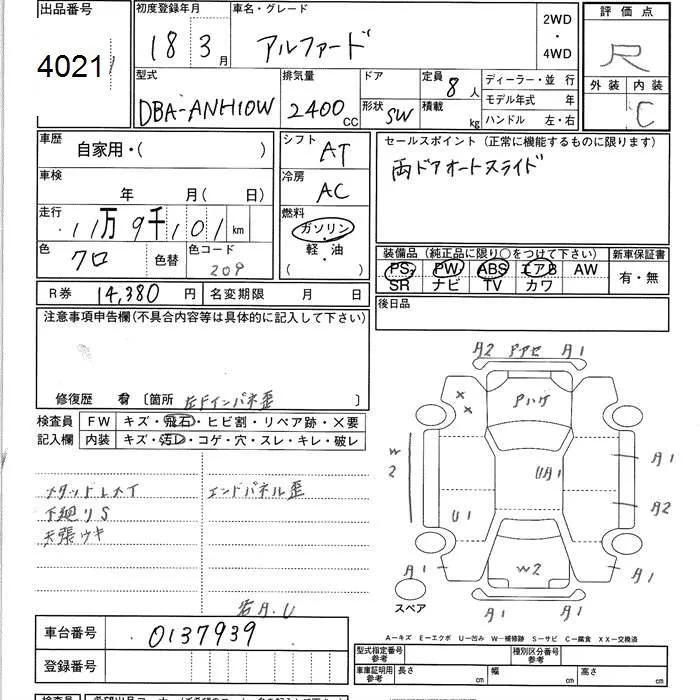 出品番号
4021
初度登録年月
18 3 月
車名・グレード
アルファード
2WD
・
4WD
評価点
R
外装 内装
C
型式
DBA-ANH10W
排気量
2400 CC
ドア
形状 SW
定員 8 人
積載 kg
ディーラー・並 行
モデル年式 年
ハンドル 左・右
車歴
自家用・( )
車検
年 月( 日)
走行
11万9千101 km
色
クロ
色替
色コード
209
シフト
AT
冷房
AC
燃料
ガソリン
・
軽・油
( )
セールスポイント (正常に機能するものに限ります)
両ドアオートスライド
装備品 (純正品に限り○をつけて下さい)
PS PW ABS エアB AW
SR ナビ TV カワ
新車保証書
有・無
後日品
R券 14,380 円
名変期限 月 日
注意事項申告欄(不具合内容等は具体的に記入して下さい)
修復歴 有 〔箇所 左Fインパネ歪 〕
検査員
記入欄
FW キズ・飛石・ヒビ割・リペア跡・×要
内装 キズ・汚レ・コゲ・穴・スレ・キレ・破レ
下廻りS
天張ウキ
エンドパネル歪
A2 A1
Pハゲ
W
2
UA1
U1
A1
A2
W2
A1 A1
A1 A1
スペア
A－キズ E－エクボ U－凹み W－補修跡 S－サビ C－腐食 XX－交換済
車台番号 0137939
登録番号
型式指定番号
参考
種別区分番号
参考
車庫証明用
参考
長さ cm 幅 cm 高さ cm
検査員